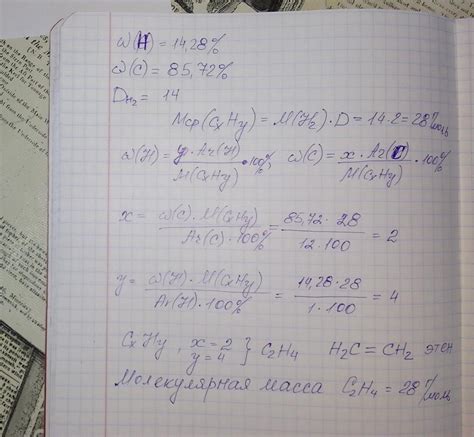 ω(H) = 14,28%
ω(C) = 85,72%
D_H₂ = 14
Mср(CxHy) = M(H₂) · D = 14 · 2 = 28 г/моль
ω(H) = y · Ar(H) / M(CxHy) · 100%, ω(C) = x · Ar(C) / M(CxHy) · 100%
x = ω(C) · M(CxHy) / Ar(C) · 100% = 85,72 · 28 / 12 · 100 = 2
y = ω(H) · M(CxHy) / Ar(H) · 100% = 14,28 · 28 / 1 · 100 = 4
CxHy, x = 2 y = 4 } C₂H₄ H₂C = CH₂ этен
Молекулярная масса C₂H₄ = 28 г/моль